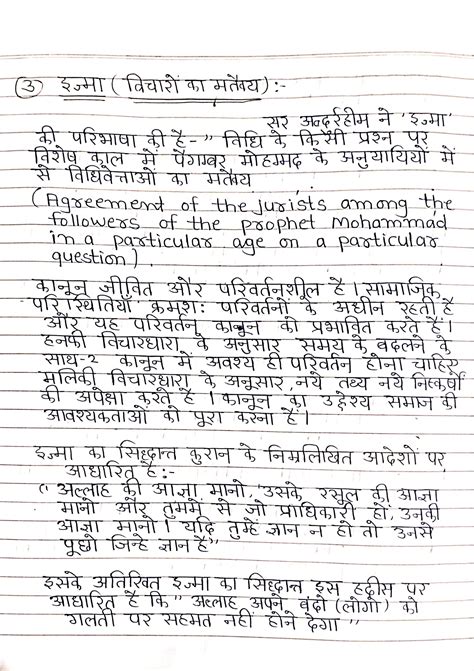 ③ इज्मा ( विचारों का मतैक्य ) :-
सर अब्दुर्रहीम ने 'इज्मा'
की परिभाषा की है- " विधि के किसी प्रश्न पर
विशेष काल में पैगम्बर मोहम्मद के अनुयायियों में
से विधिवेत्ताओं का मतैक्य
(Agreement of the jurists among the
followers of the prophet Mohammad
in a particular age on a particular
question).
कानून जीवित और परिवर्तनशील है। सामाजिक
परिस्थितियाँ क्रमश: परिवर्तनों के अधीन रहती है
और यह परिवर्तन कानून को प्रभावित करते हैं।
हनकी विचारधारा के अनुसार समय के बदलने के
साथ-2 कानून में अवश्य ही परिवर्तन होना चाहिए
मलिकी विचारधारा के अनुसार, नये तथ्य नये निष्कर्षों
की अपेक्षा करते है । कानून का उद्देश्य समाज की
आवश्यकताओं को पूरा करना है।
इज्मा का सिद्धान्त कुरान के निम्नलिखित आदेशों पर
आधारित है:-
" अल्लाह की आज्ञा मानो, उसके रसूल की आज्ञा
मानो और तुममें से जो प्राधिकारी हो, उनकी
आज्ञा मानो। यदि तुम्हें ज्ञान न हो तो उनसे
पूछो जिन्हे ज्ञान है"
इसके अतिरिक्त इज्मा का सिद्धान्त इस हदीस पर
आधारित है कि " अल्लाह अपने बंदो (लोगो) को
गलती पर सहमत नहीं होने देगा "